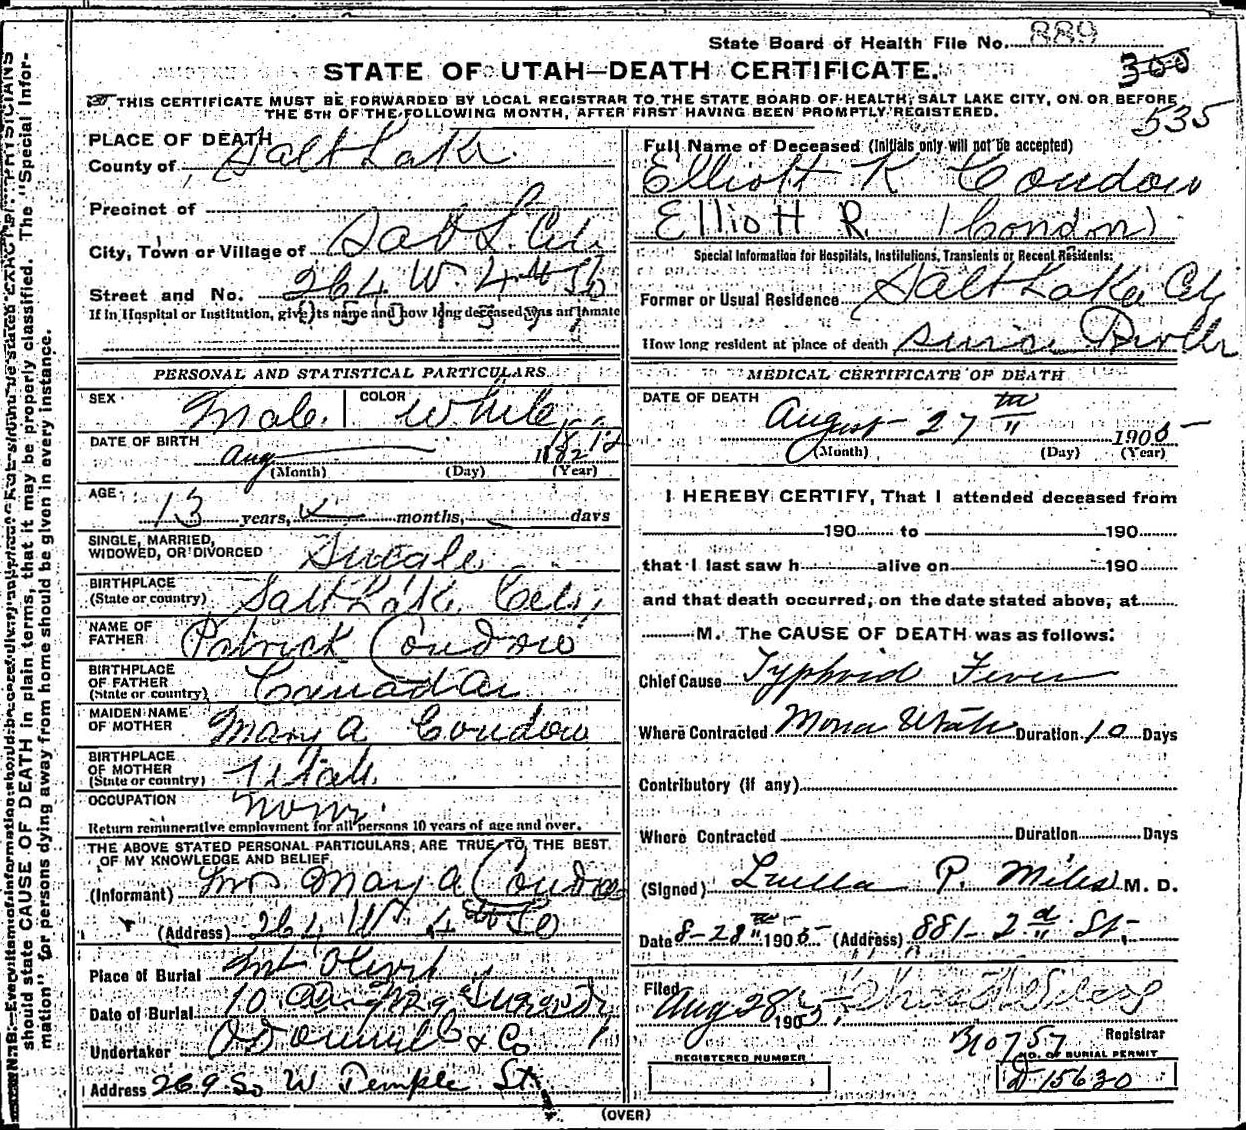 State Board of Health File No. 889
STATE OF UTAH—DEATH CERTIFICATE.
300
THIS CERTIFICATE MUST BE FORWARDED BY LOCAL REGISTRAR TO THE STATE BOARD OF HEALTH, SALT LAKE CITY, ON OR BEFORE
THE 5TH OF THE FOLLOWING MONTH, AFTER FIRST HAVING BEEN PROMPTLY REGISTERED.
535
PLACE OF DEATH
County of Salt Lake
Precinct of
City, Town or Village of Salt L. City
Street and No. 264 W. 4th So
If in Hospital or Institution, give its name and how long deceased was an inmate
Full Name of Deceased (Initials only will not be accepted)
Elliott R Condon
Elliott R. (Condon)
Special Information for Hospitals, Institutions, Transients or Recent Residents:
Former or Usual Residence Salt Lake City
How long resident at place of death since Birth
PERSONAL AND STATISTICAL PARTICULARS
SEX Male COLOR White
DATE OF BIRTH Aug
(Month) (Day) (Year)
AGE 13 years, months, days
SINGLE, MARRIED,
WIDOWED, OR DIVORCED Single
BIRTHPLACE
(State or country) Salt Lake City
NAME OF
FATHER Patrick Condon
BIRTHPLACE
OF FATHER
(State or country) Canada
MAIDEN NAME
OF MOTHER Mary A Condon
BIRTHPLACE
OF MOTHER
(State or country) Utah
OCCUPATION None
Return remunerative employment for all persons 10 years of age and over.
THE ABOVE STATED PERSONAL PARTICULARS ARE TRUE TO THE BEST
OF MY KNOWLEDGE AND BELIEF
(Informant) Mrs Mary A Condon
(Address) 264 W 4th So
Place of Burial Mt Olivet
Date of Burial 10 Aug
Undertaker O'Donnell & Co
Address 269 So W Temple St
MEDICAL CERTIFICATE OF DEATH
DATE OF DEATH August 27th 1905
(Month) (Day) (Year)
I HEREBY CERTIFY, That I attended deceased from
190 to 190
that I last saw h alive on 190
and that death occurred, on the date stated above, at
M. The CAUSE OF DEATH was as follows:
Chief Cause Typhoid Fever
Where Contracted Mona Utah Duration 10 Days
Contributory (if any)
Where Contracted Duration Days
(Signed) Luella P. Miles M. D.
Date 8-28th 1905 (Address) 881- 2d St.
Filed Aug 28 1905
Registrar
REGISTERED NUMBER
NO. OF BURIAL PERMIT
D 15630
(OVER)
should state CAUSE OF DEATH in plain terms, that it may be properly classified. The "Special Infor-
mation" for persons dying away from home should be given in every instance.